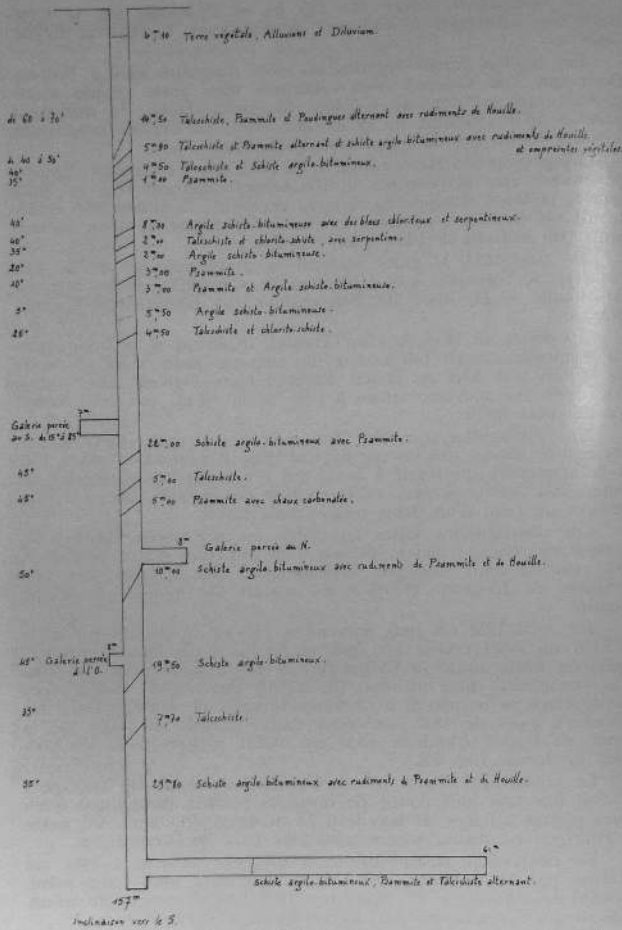 6m,10 Terre végétale, Alluvions et Diluvium.
de 60 à 70° 14m,50 Talcschiste, Psammite et Poudingues alternant avec rudiments de Houille.
5m,90 Talcschiste et Psammite alternant et schiste argilo-bitumineux avec rudiments de Houille
et empreintes végétales.
de 40 à 50°
40° 4m,50 Talcschiste et Schiste argilo-bitumineux.
35° 1m,00 Psammite.
40° 8m,00 Argile schisto-bitumineuse avec des blocs chloriteux et serpentineux.
40° 2m,00 Talcschiste et chlorito-schiste, avec serpentine.
35° 2m,00 Argile schisto-bitumineuse.
20° 3m,00 Psammite.
10° 3m,00 Psammite et Argile schisto-bitumineuse.
5° 5m,50 Argile schisto-bitumineuse.
25° 4m,50 Talcschiste et chlorito-schiste.
7m
Galerie percée
au S. de 15° à 25°
22m,00 Schiste argilo-bitumineux avec Psammite.
45° 5m,00 Talcschiste.
45° 5m,00 Psammite avec chaux carbonatée.
8m Galerie percée au N.
50° 10m,00 Schiste argilo-bitumineux avec rudiments de Psammite et de Houille.
45° Galerie percée
à l'O.
19m,50 Schiste argilo-bitumineux.
35° 7m,70 Talcschiste.
35° 29m,80 Schiste argilo-bitumineux avec rudiments de Psammite et de Houille.
Schiste argilo-bitumineux, Psammite et Talcschiste alternant.
157m
Inclinaison vers le S.